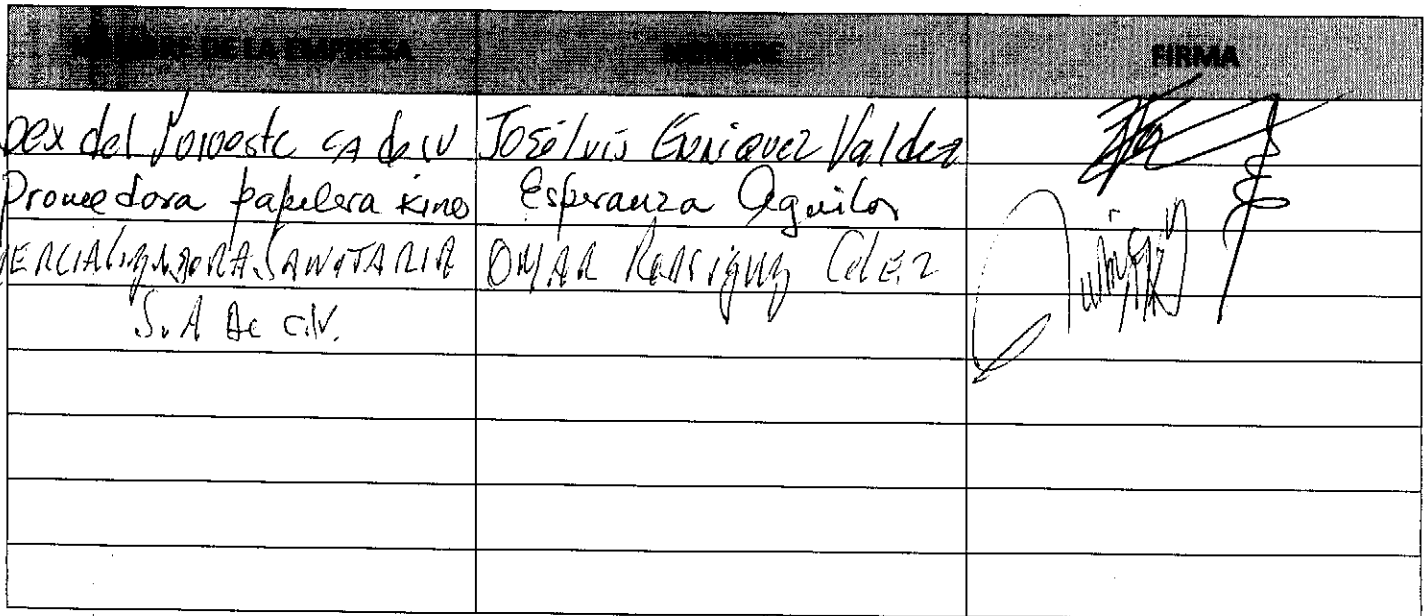 NOMBRE DE LA EMPRESA NOMBRE FIRMA
pex del Noroeste SA de CV José Luis Enriquez Valdez
Proveedora papelera Kino Esperanza Aguilar
SANITARIA OMAR
S.A De C.V.